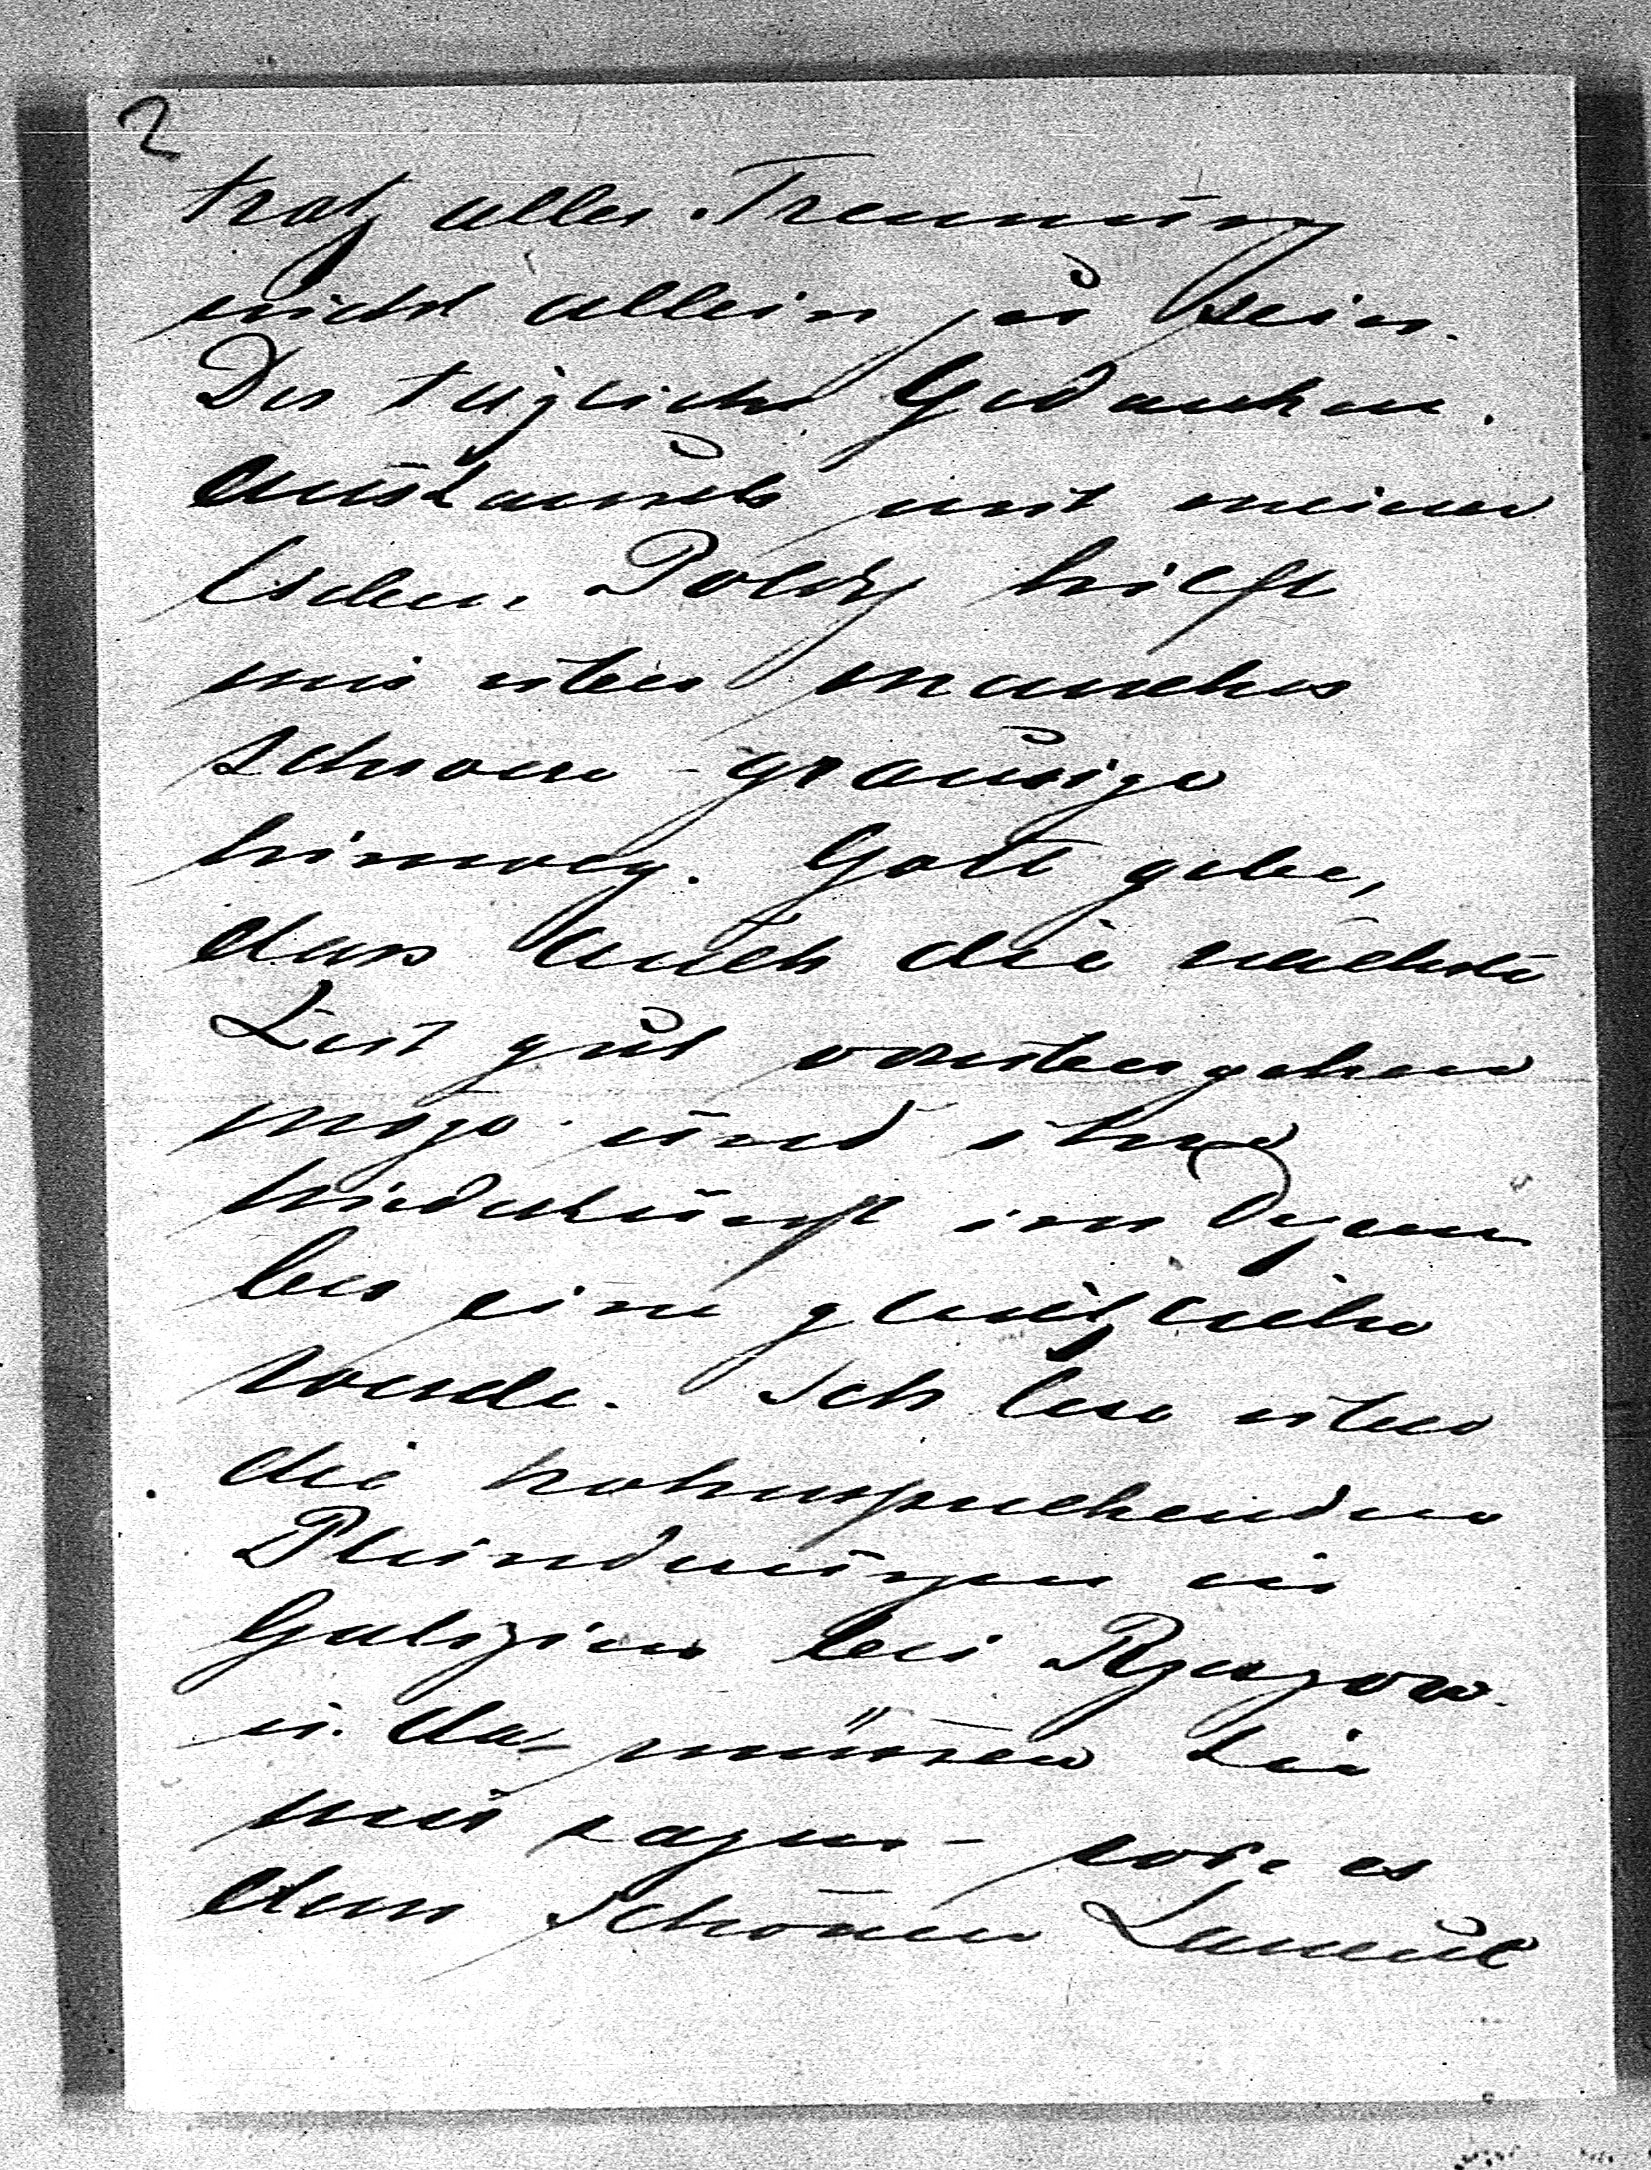 2
trotz aller Trennung
nicht allein zu sein.
Der tägliche Gedanken.
austausch mit meiner
lieben Poldy hilft
mir über manches
schwere - grausige
hinweg. Gott gebe,
dass auch die nächste
Zeit gut vorübergehen
möge und ihre
Niederkunft im Dezem
ber eine glückliche
werde. Ich lese über
die haarsträubenden
Plünderungen in
Galizien bei Rzeszow
u. da müssen Sie
mir sagen - wie es
dem schönen Lancut